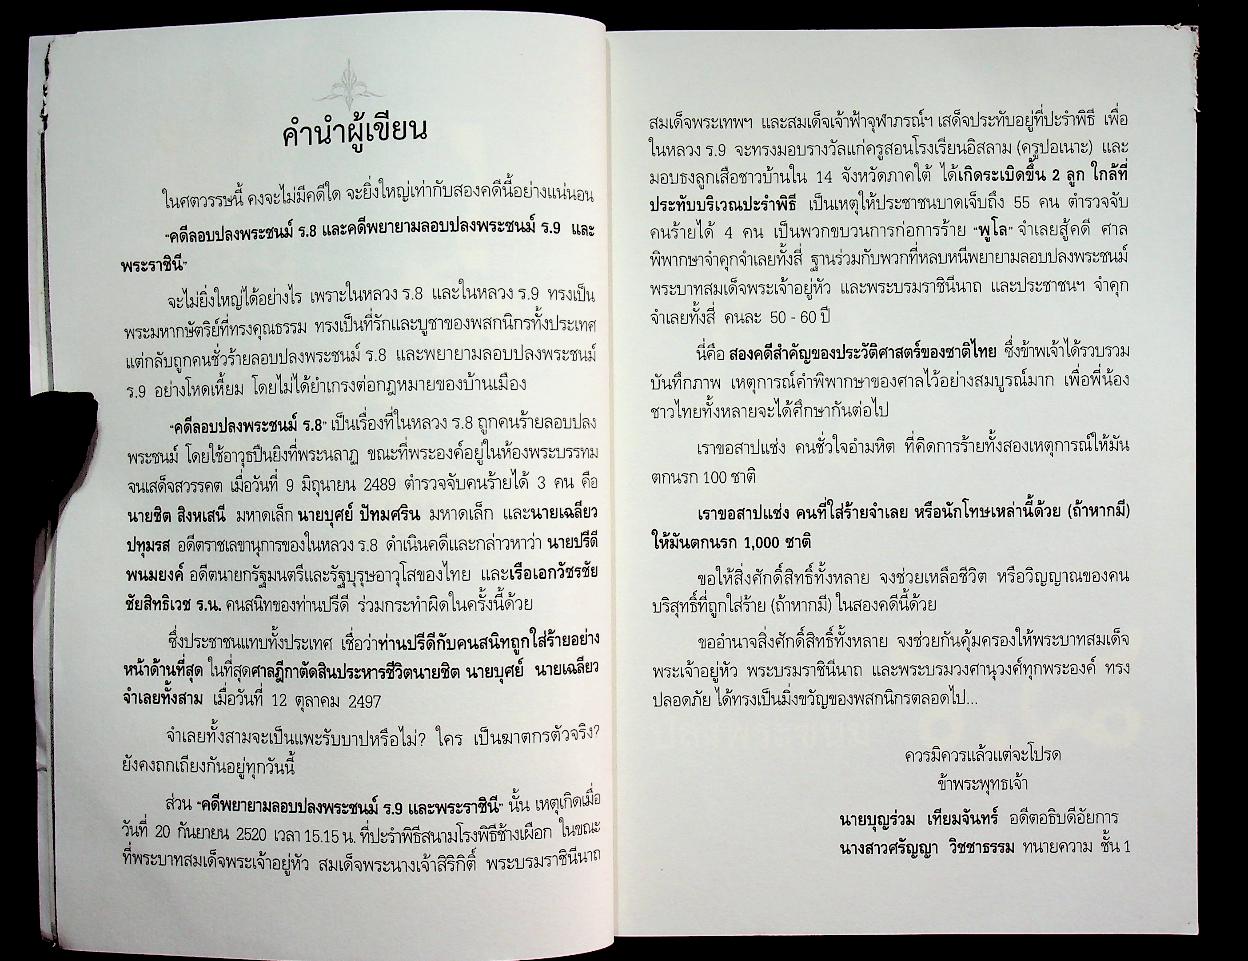 คำนำผู้เขียน
ในศตวรรษนี้ คงจะไม่มีคดีใด จะยิ่งใหญ่เท่ากับสองคดีนี้อย่างแน่นอน
"คดีลอบปลงพระชนม์ ร.8 และคดีพยายามลอบปลงพระชนม์ ร.9 และ
พระราชินี"
จะไม่ยิ่งใหญ่ได้อย่างไร เพราะในหลวง ร.8 และในหลวง ร.9 ทรงเป็น
พระมหากษัตริย์ที่ทรงคุณธรรม ทรงเป็นที่รักและบูชาของพสกนิกรทั้งประเทศ
แต่กลับถูกคนชั่วร้ายลอบปลงพระชนม์ ร.8 และพยายามลอบปลงพระชนม์
ร.9 อย่างโหดเหี้ยม โดยไม่ได้ยำเกรงต่อกฎหมายของบ้านเมือง
"คดีลอบปลงพระชนม์ ร.8" เป็นเรื่องที่ในหลวง ร.8 ถูกคนร้ายลอบปลง
พระชนม์ โดยใช้อาวุธปืนยิงที่พระนลาฏ ขณะที่พระองค์อยู่ในห้องพระบรรทม
จนเสด็จสวรรคต เมื่อวันที่ 9 มิถุนายน 2489 ตำรวจจับคนร้ายได้ 3 คน คือ
นายชิต สิงหเสนี มหาดเล็ก นายบุศย์ ปัทมศริน มหาดเล็ก และนายเฉลียว
ปทุมรส อดีตราชเลขานุการของในหลวง ร.8 ดำเนินคดีและกล่าวหาว่า นายปรีดี
พนมยงค์ อดีตนายกรัฐมนตรีและรัฐบุรุษอาวุโสของไทย และเรือเอกวัชรชัย
ชัยสิทธิเวช ร.น. คนสนิทของท่านปรีดี ร่วมกระทำผิดในครั้งนี้ด้วย
ซึ่งประชาชนแทบทั้งประเทศ เชื่อว่าท่านปรีดีกับคนสนิทถูกใส่ร้ายอย่าง
หน้าด้านที่สุด ในที่สุดศาลฎีกาตัดสินประหารชีวิตนายชิต นายบุศย์ นายเฉลียว
จำเลยทั้งสาม เมื่อวันที่ 12 ตุลาคม 2497
จำเลยทั้งสามจะเป็นแพะรับบาปหรือไม่? ใคร เป็นฆาตกรตัวจริง?
ยังคงถกเถียงกันอยู่ทุกวันนี้
ส่วน "คดีพยายามลอบปลงพระชนม์ ร.9 และพระราชินี" นั้น เหตุเกิดเมื่อ
วันที่ 20 กันยายน 2520 เวลา 15.15 น. ที่ปะรำพิธีสนามโรงพิธีช้างเผือก ในขณะ
ที่พระบาทสมเด็จพระเจ้าอยู่หัว สมเด็จพระนางเจ้าสิริกิติ์ พระบรมราชินีนาถ
สมเด็จพระเทพฯ และสมเด็จเจ้าฟ้าจุฬาภรณ์ฯ เสด็จประทับอยู่ที่ปะรำพิธี เพื่อ
ในหลวง ร.9 จะทรงมอบรางวัลแก่ครูสอนโรงเรียนอิสลาม (ครูปอเนาะ) และ
มอบธงลูกเสือชาวบ้านใน 14 จังหวัดภาคใต้ ได้เกิดระเบิดขึ้น 2 ลูก ใกล้ที่
ประทับบริเวณปะรำพิธี เป็นเหตุให้ประชาชนบาดเจ็บถึง 55 คน ตำรวจจับ
คนร้ายได้ 4 คน เป็นพวกขบวนการก่อการร้าย "พูโล" จำเลยสู้คดี ศาล
พิพากษาจำคุกจำเลยทั้งสี่ ฐานร่วมกับพวกที่หลบหนีพยายามลอบปลงพระชนม์
พระบาทสมเด็จพระเจ้าอยู่หัว และพระบรมราชินีนาถ และประชาชนฯ จำคุก
จำเลยทั้งสี่ คนละ 50 - 60 ปี
นี่คือ สองคดีสำคัญของประวัติศาสตร์ของชาติไทย ซึ่งข้าพเจ้าได้รวบรวม
บันทึกภาพ เหตุการณ์คำพิพากษาของศาลไว้อย่างสมบูรณ์มาก เพื่อพี่น้อง
ชาวไทยทั้งหลายจะได้ศึกษากันต่อไป
เราขอสาปแช่ง คนชั่วใจอำมหิต ที่คิดการร้ายทั้งสองเหตุการณ์ให้มัน
ตกนรก 100 ชาติ
เราขอสาปแช่ง คนที่ใส่ร้ายจำเลย หรือนักโทษเหล่านี้ด้วย (ถ้าหากมี)
ให้มันตกนรก 1,000 ชาติ
ขอให้สิ่งศักดิ์สิทธิ์ทั้งหลาย จงช่วยเหลือชีวิต หรือวิญญาณของคน
บริสุทธิ์ที่ถูกใส่ร้าย (ถ้าหากมี) ในสองคดีนี้ด้วย
ขออำนาจสิ่งศักดิ์สิทธิ์ทั้งหลาย จงช่วยกันคุ้มครองให้พระบาทสมเด็จ
พระเจ้าอยู่หัว พระบรมราชินีนาถ และพระบรมวงศานุวงศ์ทุกพระองค์ ทรง
ปลอดภัย ได้ทรงเป็นมิ่งขวัญของพสกนิกรตลอดไป...
ควรมิควรแล้วแต่จะโปรด
ข้าพระพุทธเจ้า
นายบุญร่วม เทียมจันทร์ อดีตอธิบดีอัยการ
นางสาวศรัญญา วิชชาธรรม ทนายความ ชั้น 1